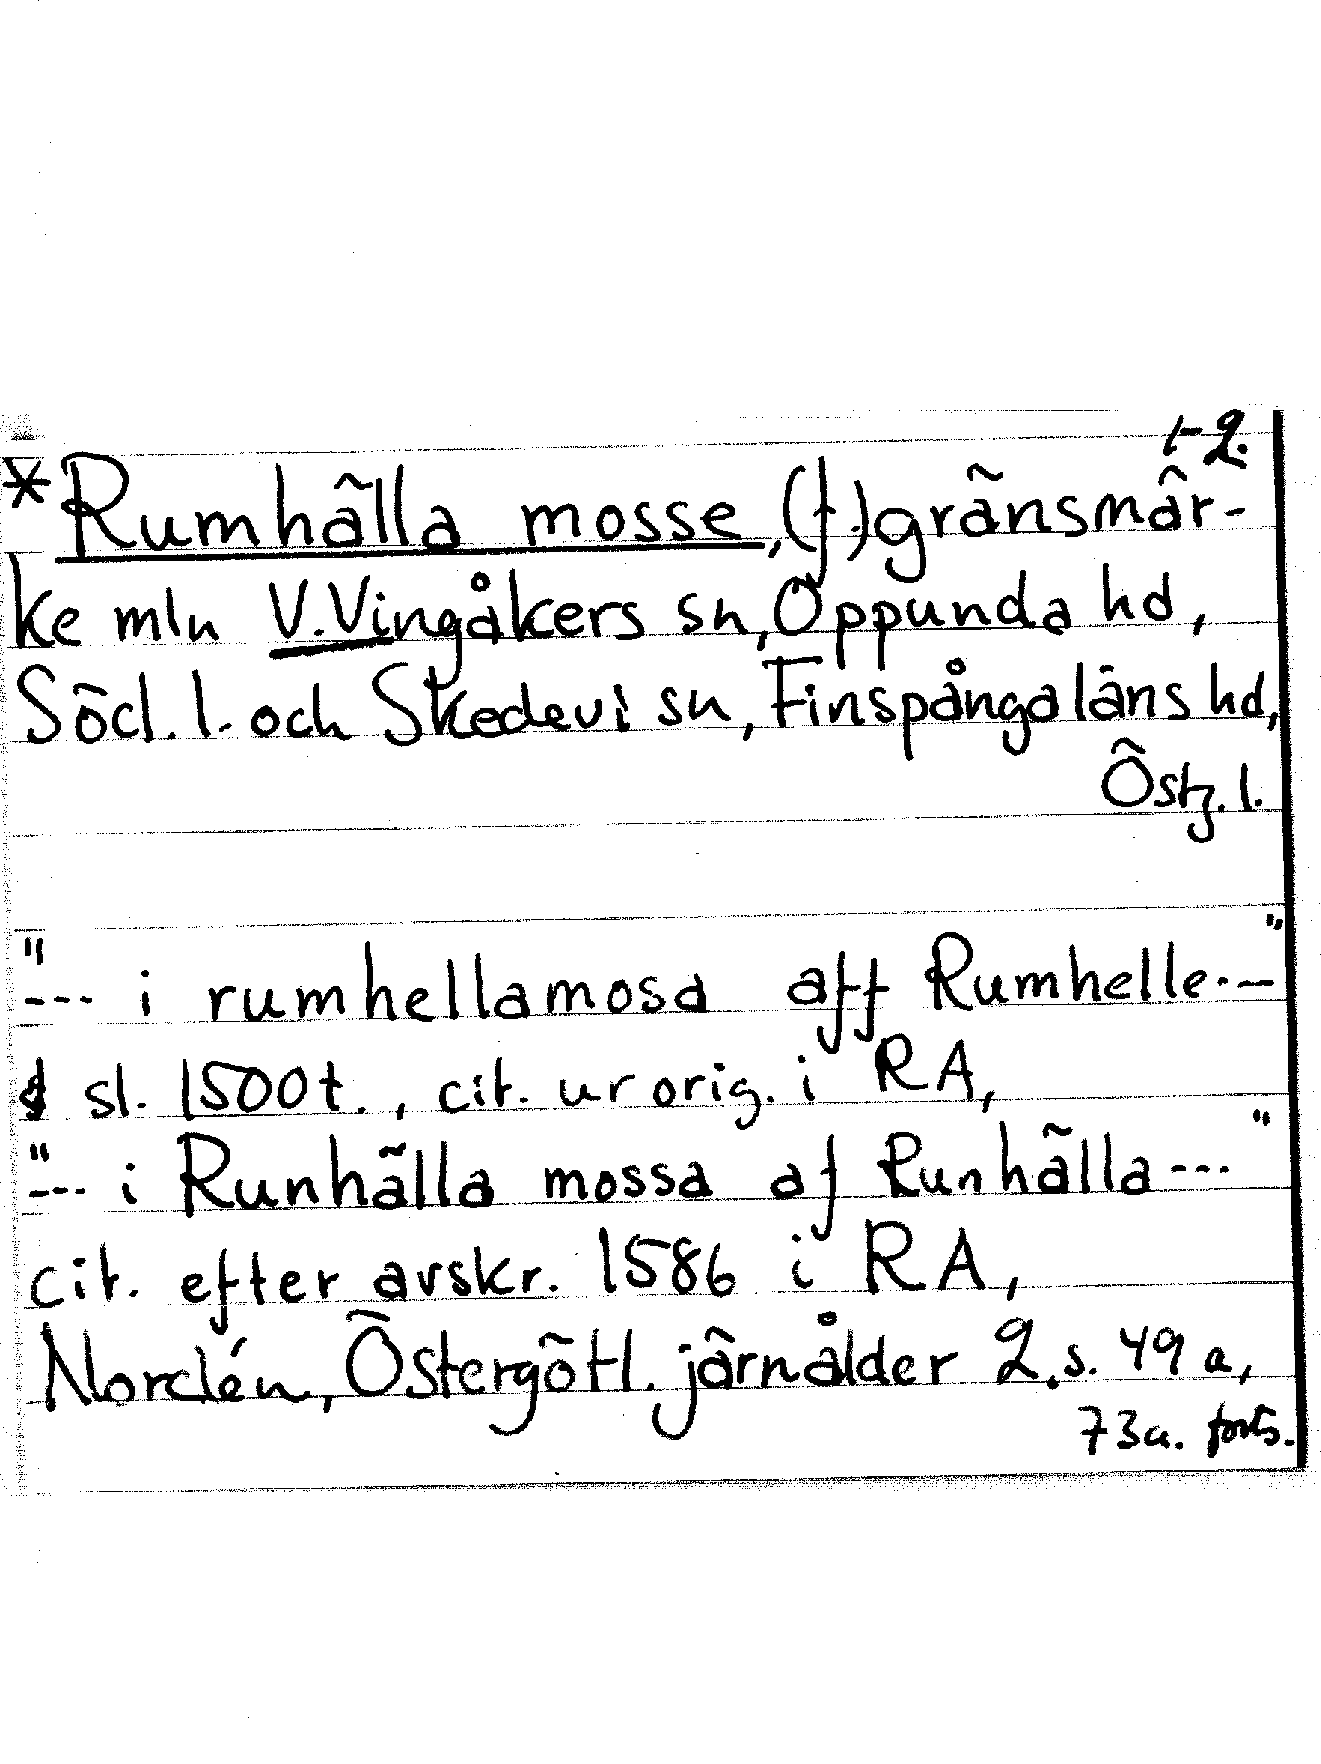 1-2.
*Rumhälla mosse, (f.) gränsmär-
ke mln V. Vingåkers sn, Oppunda hd,
Södl. l. och Skedevi sn, Finspånga läns hd,
Östg. l.
"--- i rumhellamosa aff Rumhelle ---"
sl. 1500t., cit. ur orig. i RA,
"--- i Runhälla mossa af Runhälla ---"
cit. efter avskr. 1586 i RA,
Nordén, Östergötl. järnålder 2. s. 49 a,
73a. forts.